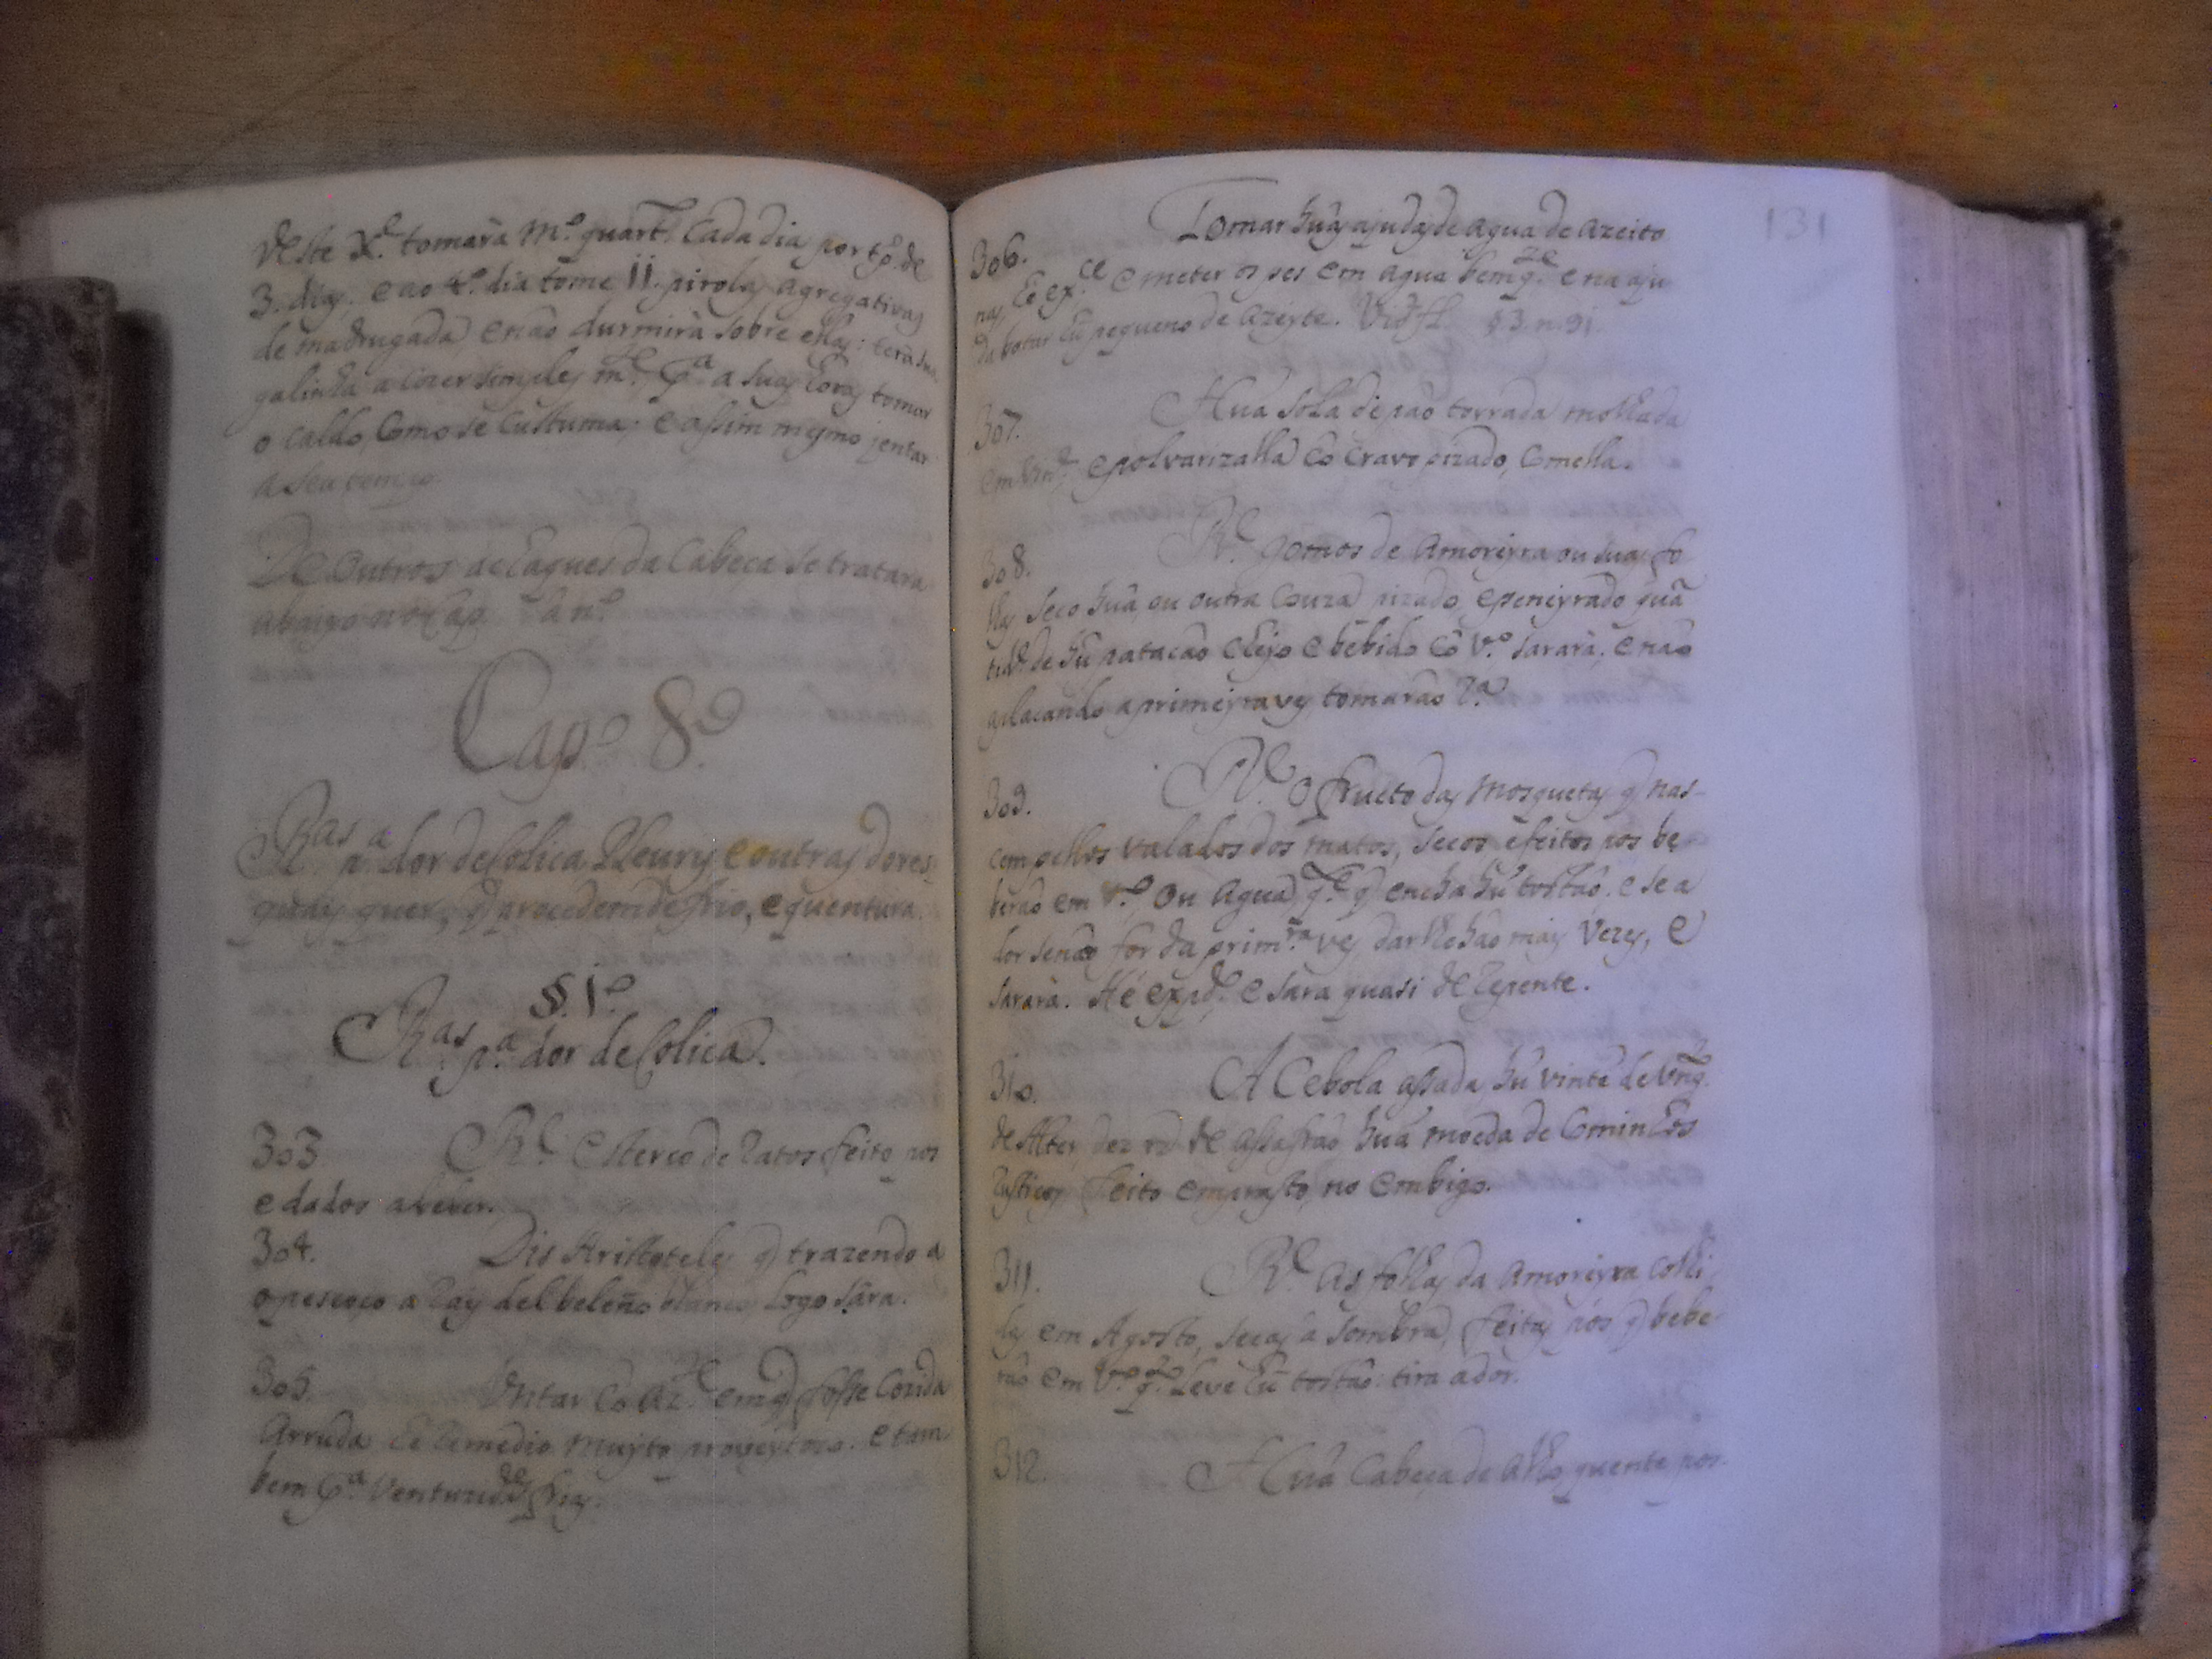 deste X.e tomarà m.o quart. Cada dia por tp.o de
3. dias. e ao 4.o dia tome II. pirolas agregativas
de madrugada, e não durmirà sobre ellas: terà sua
galinha a cozer simples m.te, p.a a suas horas tomar
o caldo, Como se Custuma; e assim mesmo jentar
a seu tempo.
De Outros achaques da Cabeça se tratara
abaixo no Cap. à n.o
Cap.o 8.o
R.as p.a dor de Colica, Pleuris e outras dores,
quais quer, q procedem de frio, e quentura.
§. 1.o
R.as p.a dor de Colica.
303. R.e esterco de Ratos feito pos
e dados a beber.
304. Dis Aristotele q trazendo a
o pescoço a Raÿ del beleño blanco, logo sâra.
305. Untar Cõ Az.te em q fosse Cozida
Arruda he Remedio muÿto proveÿtoso. e tam
bem p.a Ventuzid.des frias.
131
306. Tomar huãs ajudas de agua de azeito
nas, he ex.ce e meter os pes em agua bem q.te e na aju
da botar hũ pequeno de Azeÿte. Vid. fl. §. 3. n. 91.
307. Huã Sopa de pão torrada molhada
em Vin.o, e polvarizalla Cõ Cravo pizado, Comella.
308. R.e gomos de Amoreÿra ou suas fo
lhas seco huã, ou outra Couza pizado, e peneÿrado quã
tid.e de hũ patacão cheÿo e bebido Cõ V.o sararà; e não
aplacando a primeÿra ves tomarão 2.a
309. R.e O fructo das Mosquetas q nas-
cem pellos Valados dos matos, secos e feitos pos be
berão em V.o Ou Agua, q.to q encha hũ tostão. e se a
dor se não for da prim.ra ves, darlhe hão mais Vezes, e
sararà. Hé exp.do e sara quasi de Repente.
310. A Cebola assada, hũ vinte de Vng.
de Alter, dez rs de assafrão huã moeda de Cominhos
Rusticos, feito emprasto, no embigo.
311. R.e as folhas da Amoreÿra Colhi
das em Agosto, secas à sombra, feitas pós q bebe
rão em V.o q.to Leve hũ tostão: tira a dor.
312. Huã Cabeça de Alho quente por